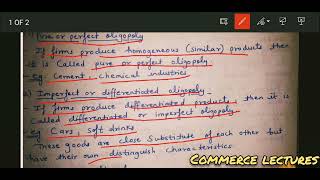 1 OF 2
1) Pure or perfect oligopoly
If firms produce homogeneous (similar) products then
it is called pure or perfect oligopoly.
Eg. Cement, Chemical industries
2) Imperfect or differentiated oligopoly
If firms produce differentiated products, then it is
called differentiated or imperfect oligopoly.
eg Cars, Soft drinks
These goods are close Substitute of each other but
have their own distinguish characteristics
COMMERCE LECTURES